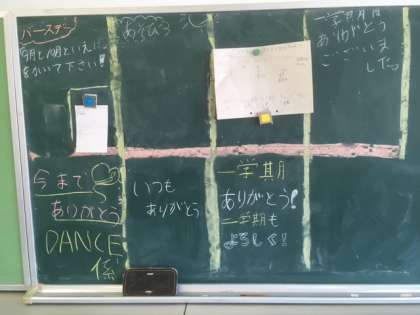 バースデー
9月と10月といえば
をかいて下さい!
あそびろ
一学期は
ありがとう
ございま
した。
今まで
ありがとう
DANCE
係
いつも
ありがとう
一学期
ありがとう!
二学期も
よろしく!